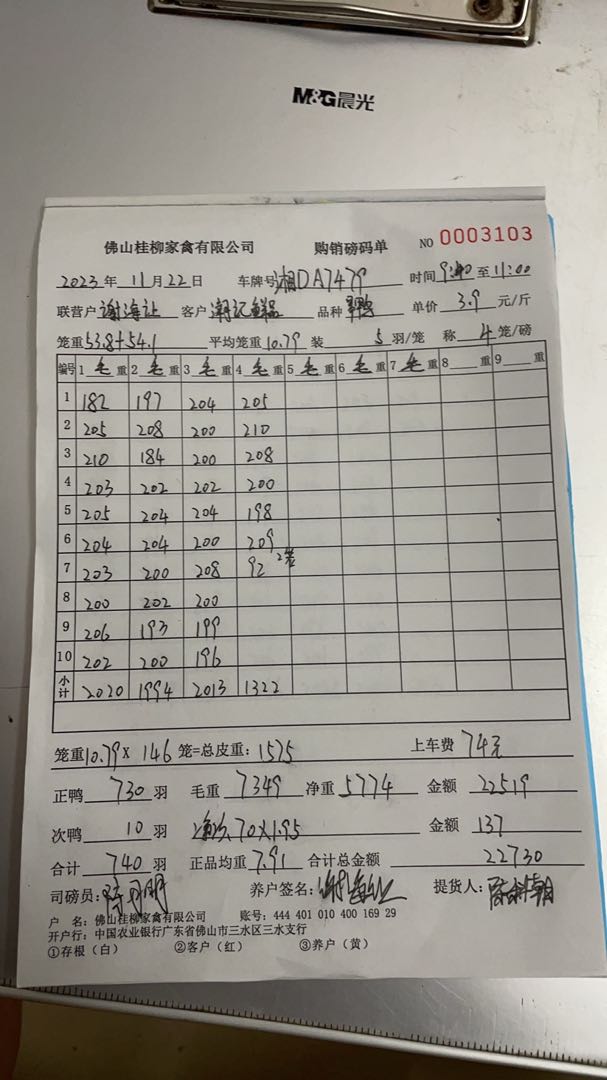 M&G晨光
佛山桂柳家禽有限公司 购销磅码单 NO 0003103
2023年 11月 22日 车牌号 湘DA7479 时间 9:40 至 11:00
联营户 谢海让 客户 潮记鲜品 品种 鸭 单价 3.9 元/斤
笼重 53.8+54.1 平均笼重 10.79 装 5 羽/笼 称 4 笼/磅
编号 1 毛 重 2 毛 重 3 毛 重 4 毛 重 5 毛 重 6 毛 重 7 毛 重 8 重 9 重
1 182 197 204 205
2 205 208 200 210
3 210 184 200 208
4 203 202 202 200
5 205 204 204 198
6 204 204 200 209
7 203 200 208 92 2笼
8 200 202 200
9 206 193 199
10 202 200 196
小计 2020 1994 2013 1322
笼重 10.79 × 146 笼=总皮重: 1575 上车费 74元
正鸭 730 羽 毛重 7349 净重 5774 金额 22519
次鸭 10 羽 70×1.95 金额 137
合计 740 羽 正品均重 7.91 合计总金额 22730
司磅员: 养户签名: 提货人:
户 名: 佛山桂柳家禽有限公司 账号: 444 401 010 400 169 29
开户行: 中国农业银行广东省佛山市三水区三水支行
①存根（白） ②客户（红） ③养户（黄）